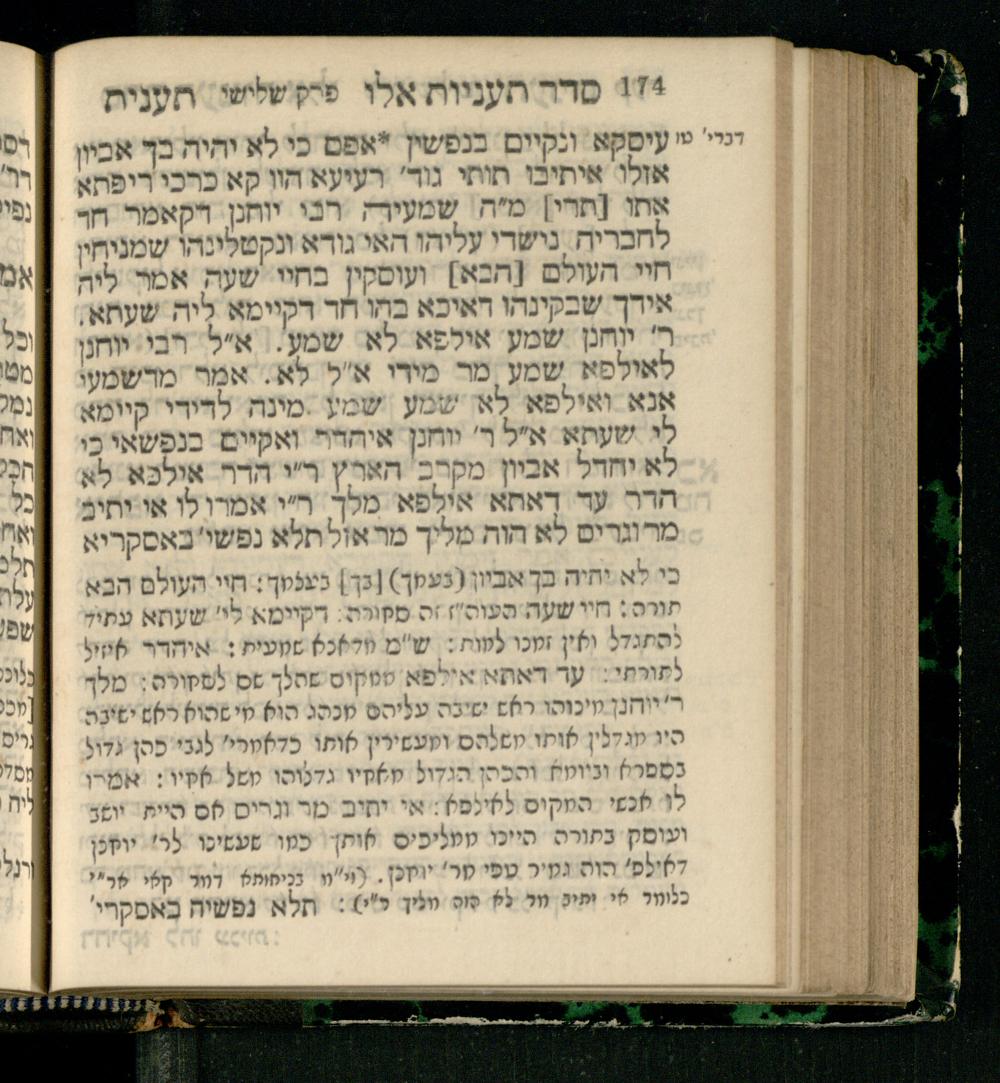 174 סדר תעניות אלו פרק שלישי תענית
דברי׳ טו עיסקא ונקיים בנפשין *אפס כי לא יהיה בך אביון
אזלו איתיבו תותי גוד׳ רעיעא הוו קא כרכי ריפתא
אתו [תרי] מ״ה שמעיה רבי יוחנן דקאמר חד
לחבריה נישדי עליהו האי גודא ונקטלינהו שמניחין
חיי העולם [הבא] ועוסקין בחיי שעה אמר ליה
אידך שבקינהו דאיכא בהו חד דקיימא ליה שעתא.
ר׳ יוחנן שמע אילפא לא שמע. א״ל רבי יוחנן
לאילפא שמע מר מידי א״ל לא. אמר מדשמעי
אנא ואילפא לא שמע שמע מינה לדידי קיימא
לי שעתא א״ל ר׳ יוחנן איהדר ואקיים בנפשאי כי
לא יחדל אביון מקרב הארץ ר״י הדר אילפא לא
הדר עד דאתא אילפא מלך ר״י אמרו לו אי יתיב
מר וגרים לא הוה מליך מר אזל תלא נפשי׳ באסקריא
כי לא יהיה בך אביון (בעמך) [בך] בעצמך: חיי העולם הבא
תורה: חיי שעה העוה״ז זה סחורה: דקיימא לי׳ שעתא עתיד
להתגדל ואין זמנו למות: ש״מ מדאנא שמעית: איהדר אזיל
לתורתי: עד דאתא אילפא ממקום שהלך שם לסחורה: מלך
ר׳ יוחנן מינוהו ראש ישיבה עליהם מנהג הוא מי שהוא ראש ישיבה
היו מגדלין אותו משלהם ומעשירין אותו כדאמרי׳ לגבי כהן גדול
בספרא וביומא והכהן הגדול מאחיו גדלוהו משל אחיו: אמרו
לו אנשי המקום לאילפא: אי יתיב מר וגרים אם היית יושב
ועוסק בתורה היינו ממליכים אותך כמו שעשינו לר׳ יוחנן
דאילפ׳ הוה גמיר טפי מר׳ יוחנן. (וי״מ בניחותא דמר קאי אר״י
כלומר אי יתיב מר לא הוה מליך ר״י): תלא נפשיה באסקרי׳